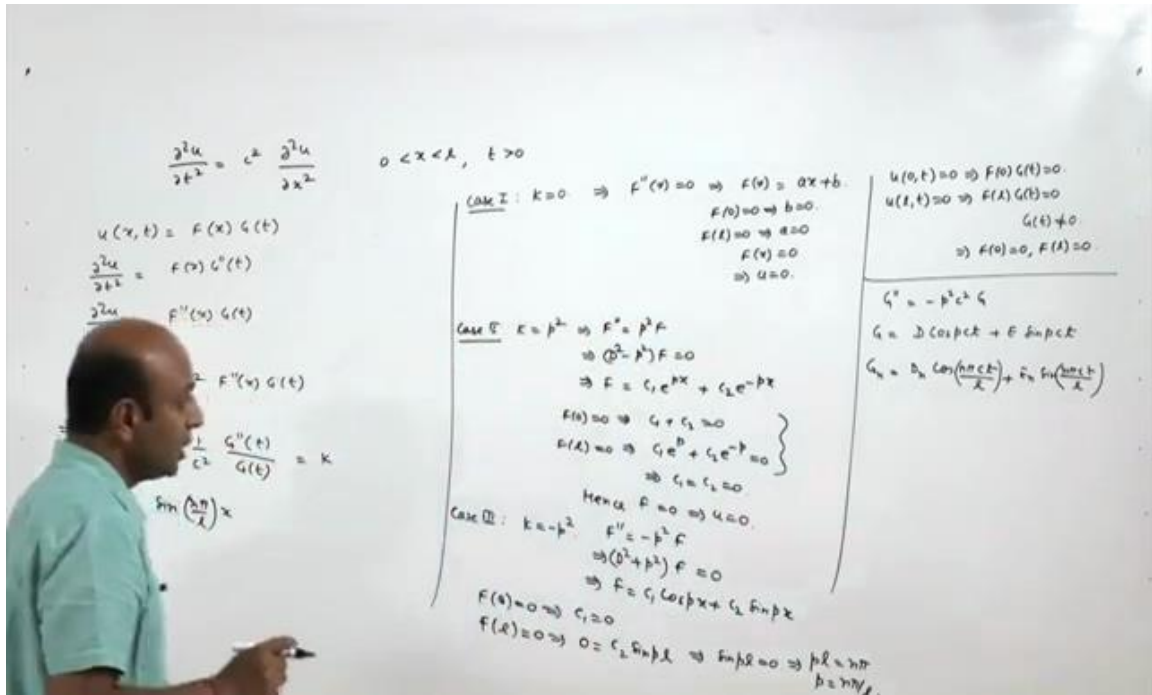 ∂²u/∂t² = c² ∂²u/∂x²   0 < x < l, t > 0
u(x,t) = F(x) G(t)
∂²u/∂t² = F(x) G''(t)
∂²u F''(x) G(t)
² F''(x) G(t)
1/c² G''(t)/G(t) = k
Sin(nπ/l)x
Case I : k=0. ⇒ F''(x)=0 ⇒ F(x) = ax+b.
F(0)=0 ⇒ b=0.
F(l)=0 ⇒ a=0
F(x)=0
⇒ u=0.
Case II k=p² ⇒ F''= p²F
⇒ (D²-p²)F=0
⇒ F = c₁e^{px} + c₂e^{-px}
F(0)=0 ⇒ c₁+c₂=0
F(l)=0 ⇒ c₁e^{p} + c₂e^{-p}=0
⇒ c₁=c₂=0.
Hence F=0 ⇒ u=0.
Case III : k=-p². F''=-p²F
⇒(D²+p²)F=0
⇒ F= c₁Cospx + c₂Sinpx
F(0)=0 ⇒ c₁=0
F(l)=0 ⇒ 0=c₂Sinpl ⇒ Sinpl=0 ⇒ pl=nπ
p=nπ/l
u(0,t)=0 ⇒ F(0)G(t)=0.
u(l,t)=0 ⇒ F(l)G(t)=0
G(t)≠0
⇒ F(0)=0, F(l)=0.
G''=-p²c²G
G = DCospct + ESinpct
Gₙ = Dₙ Cos(nπct/l) + Eₙ Sin(nπct/l)